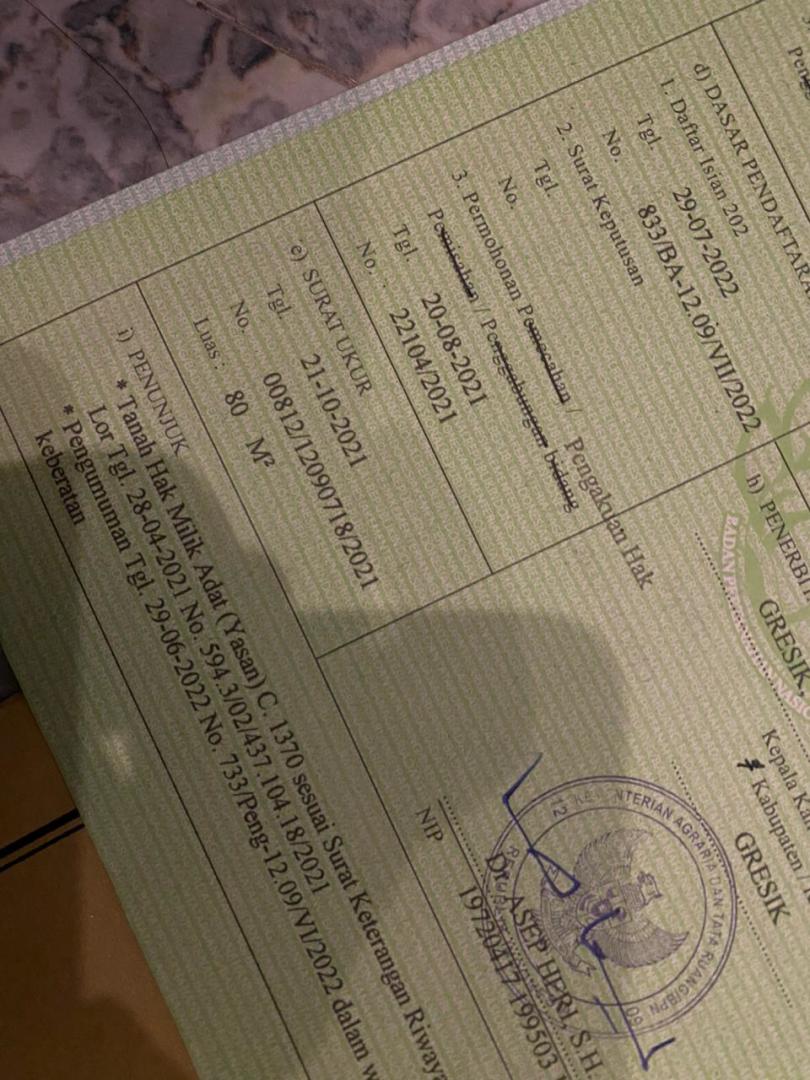 d) DASAR PENDAFTARA
1. Daftar Isian 202
Tgl. 29-07-2022
No. 833/BA-12.09/VII/2022
2. Surat Keputusan
Tgl.
No.
3. Permohonan Pemecahan /
Pemisahan / Penggabungan bidang
Pengakuan Hak
Tgl. 20-08-2021
No. : 22104/2021
e) SURAT UKUR
Tgl. 21-10-2021
No. 00812/12090718/2021
Luas : 80 M²
h) PENERBI
GRESIK,
Kepala Ka
Kabupaten /
GRESIK
KEMENTERIAN AGRARIA DAN TATA RUANG/BPN
Dr. ASEP HERI, S.H.
NIP 19720417 199503
i) PENUNJUK
* Tanah Hak Milik Adat (Yasan) C. 1370 sesuai Surat Keterangan Riwaya
Lor Tgl. 28-04-2021 No. 594.3/02/437.104.18/2021
* Pengumuman Tgl. 29-06-2022 No. 733/Peng-12.09/VI/2022 dalam w
keberatan